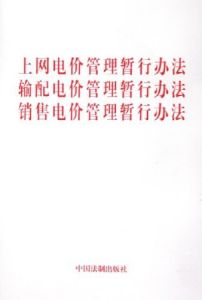 上网电价管理暂行办法
输配电价管理暂行办法
销售电价管理暂行办法
中国法制出版社